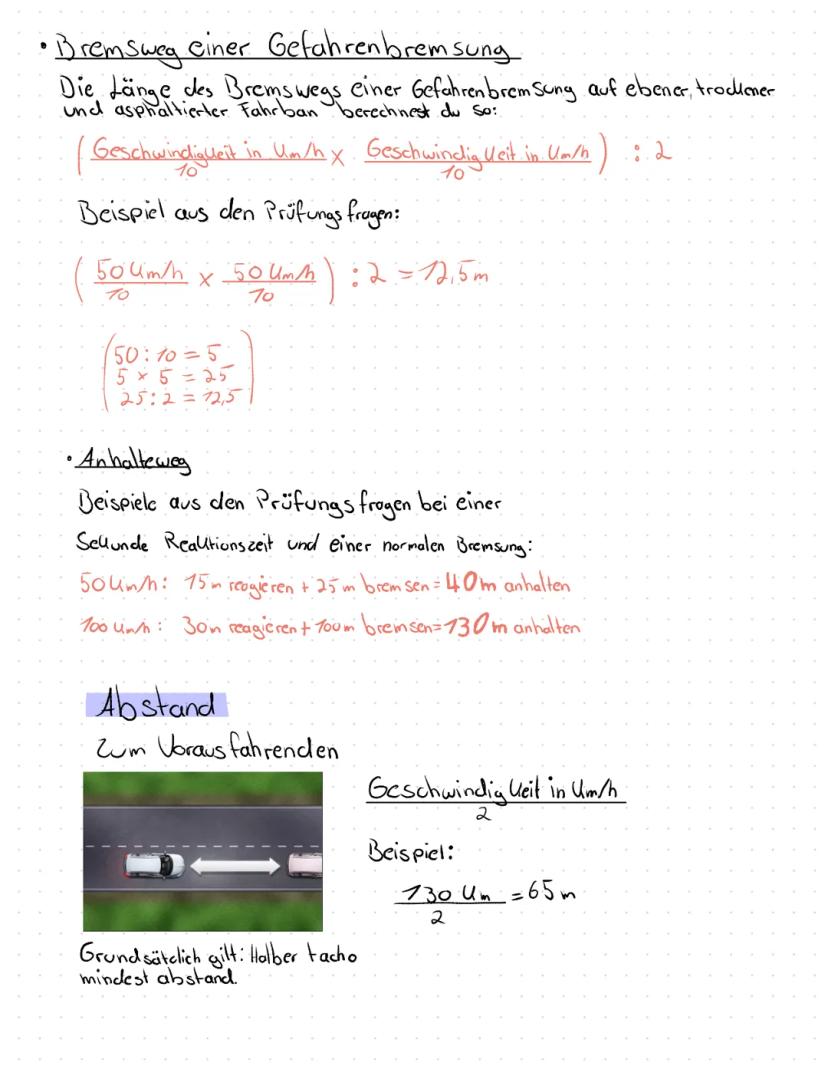 • Bremsweg einer Gefahrenbremsung
Die Länge des Bremswegs einer Gefahrenbremsung auf ebener, trockener
und asphaltierter Fahrban berechnest du so:
(Geschwindigkeit in km/h / 10 x Geschwindigkeit in km/h / 10) : 2
Beispiel aus den Prüfungsfragen:
(50 km/h / 10 x 50 km/h / 10) : 2 = 12,5 m
(50 : 10 = 5
5 x 5 = 25
25 : 2 = 12,5)
• Anhalteweg
Beispiele aus den Prüfungsfragen bei einer
Sekunde Reaktionszeit und einer normalen Bremsung:
50 km/h: 15 m reagieren + 25 m bremsen = 40 m anhalten
100 km/h: 30 m reagieren + 100 m bremsen = 130 m anhalten
Abstand
zum Vorausfahrenden
Geschwindigkeit in km/h
2
Beispiel:
130 km / 2 = 65 m
Grundsätclich gilt: Halber tacho
mindest abstand.